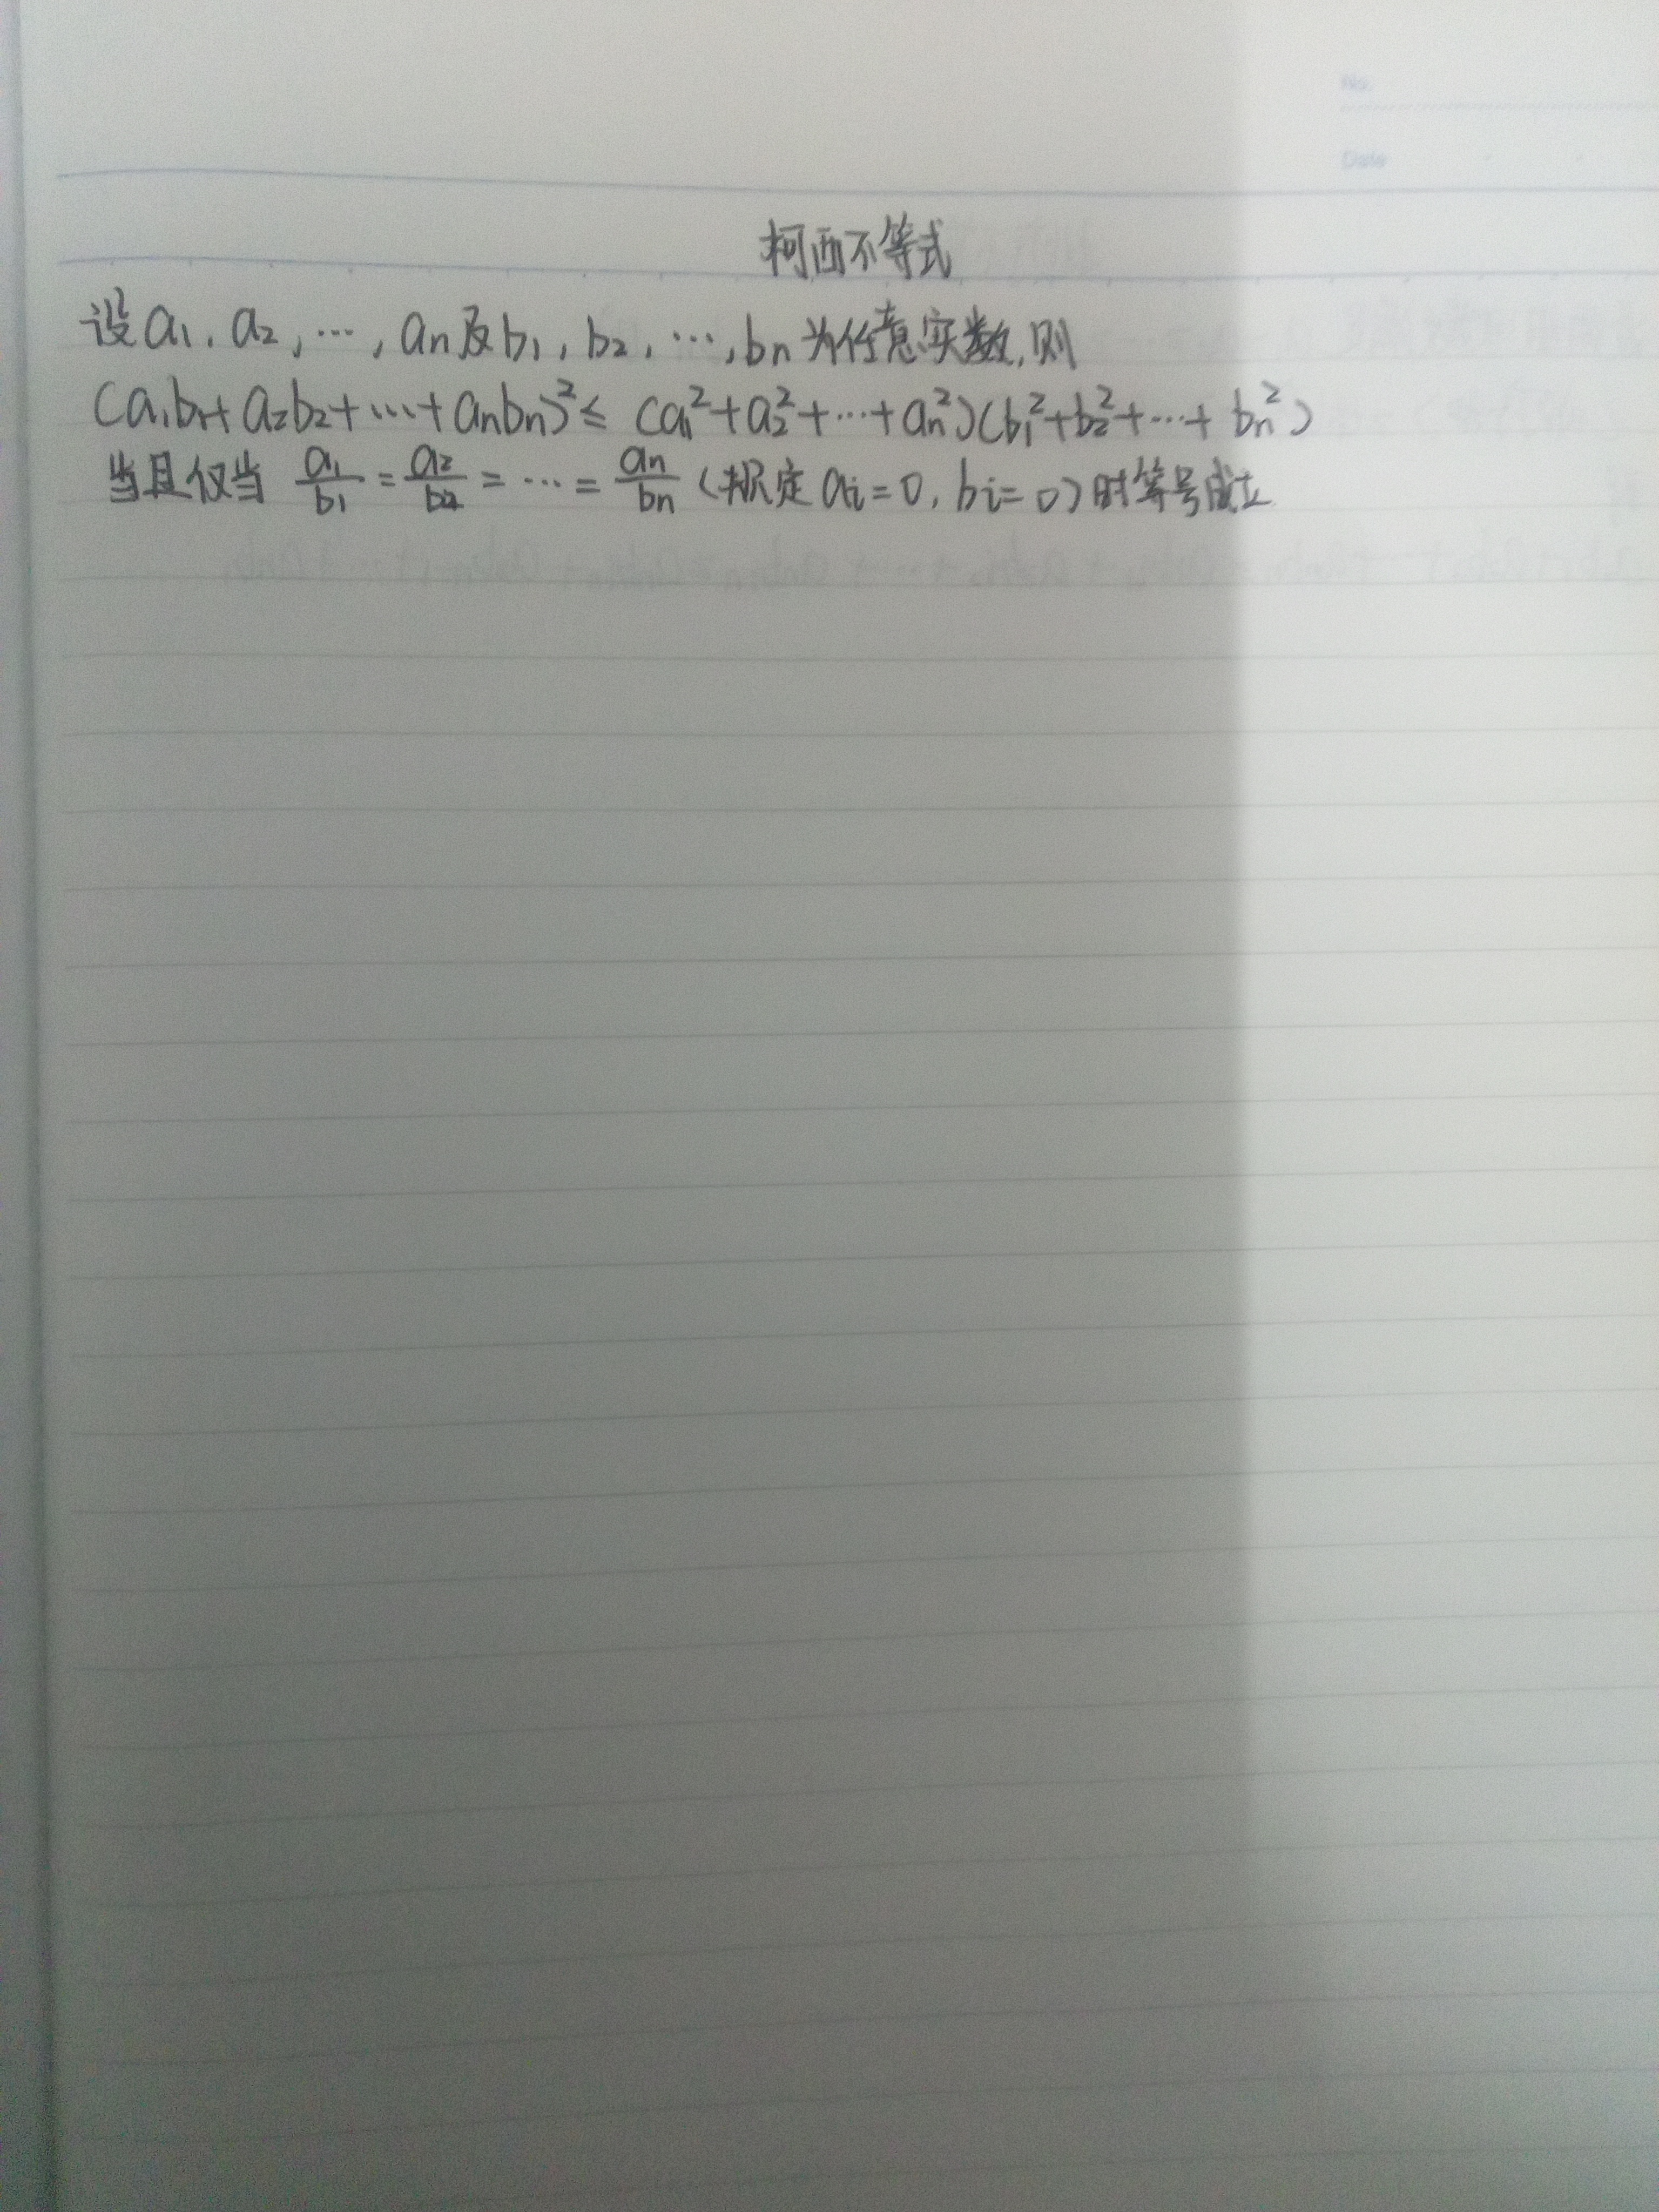 No.
Date
柯西不等式
设a₁, a₂, ⋯, aₙ及b₁, b₂, ⋯, bₙ为任意实数,则
(a₁b₁+a₂b₂+⋯+aₙbₙ)²≤ (a₁²+a₂²+⋯+aₙ²)(b₁²+b₂²+⋯+bₙ²)
当且仅当 a₁/b₁ = a₂/b₂ = ⋯ = aₙ/bₙ (规定 aᵢ=0, bᵢ=0)时等号成立